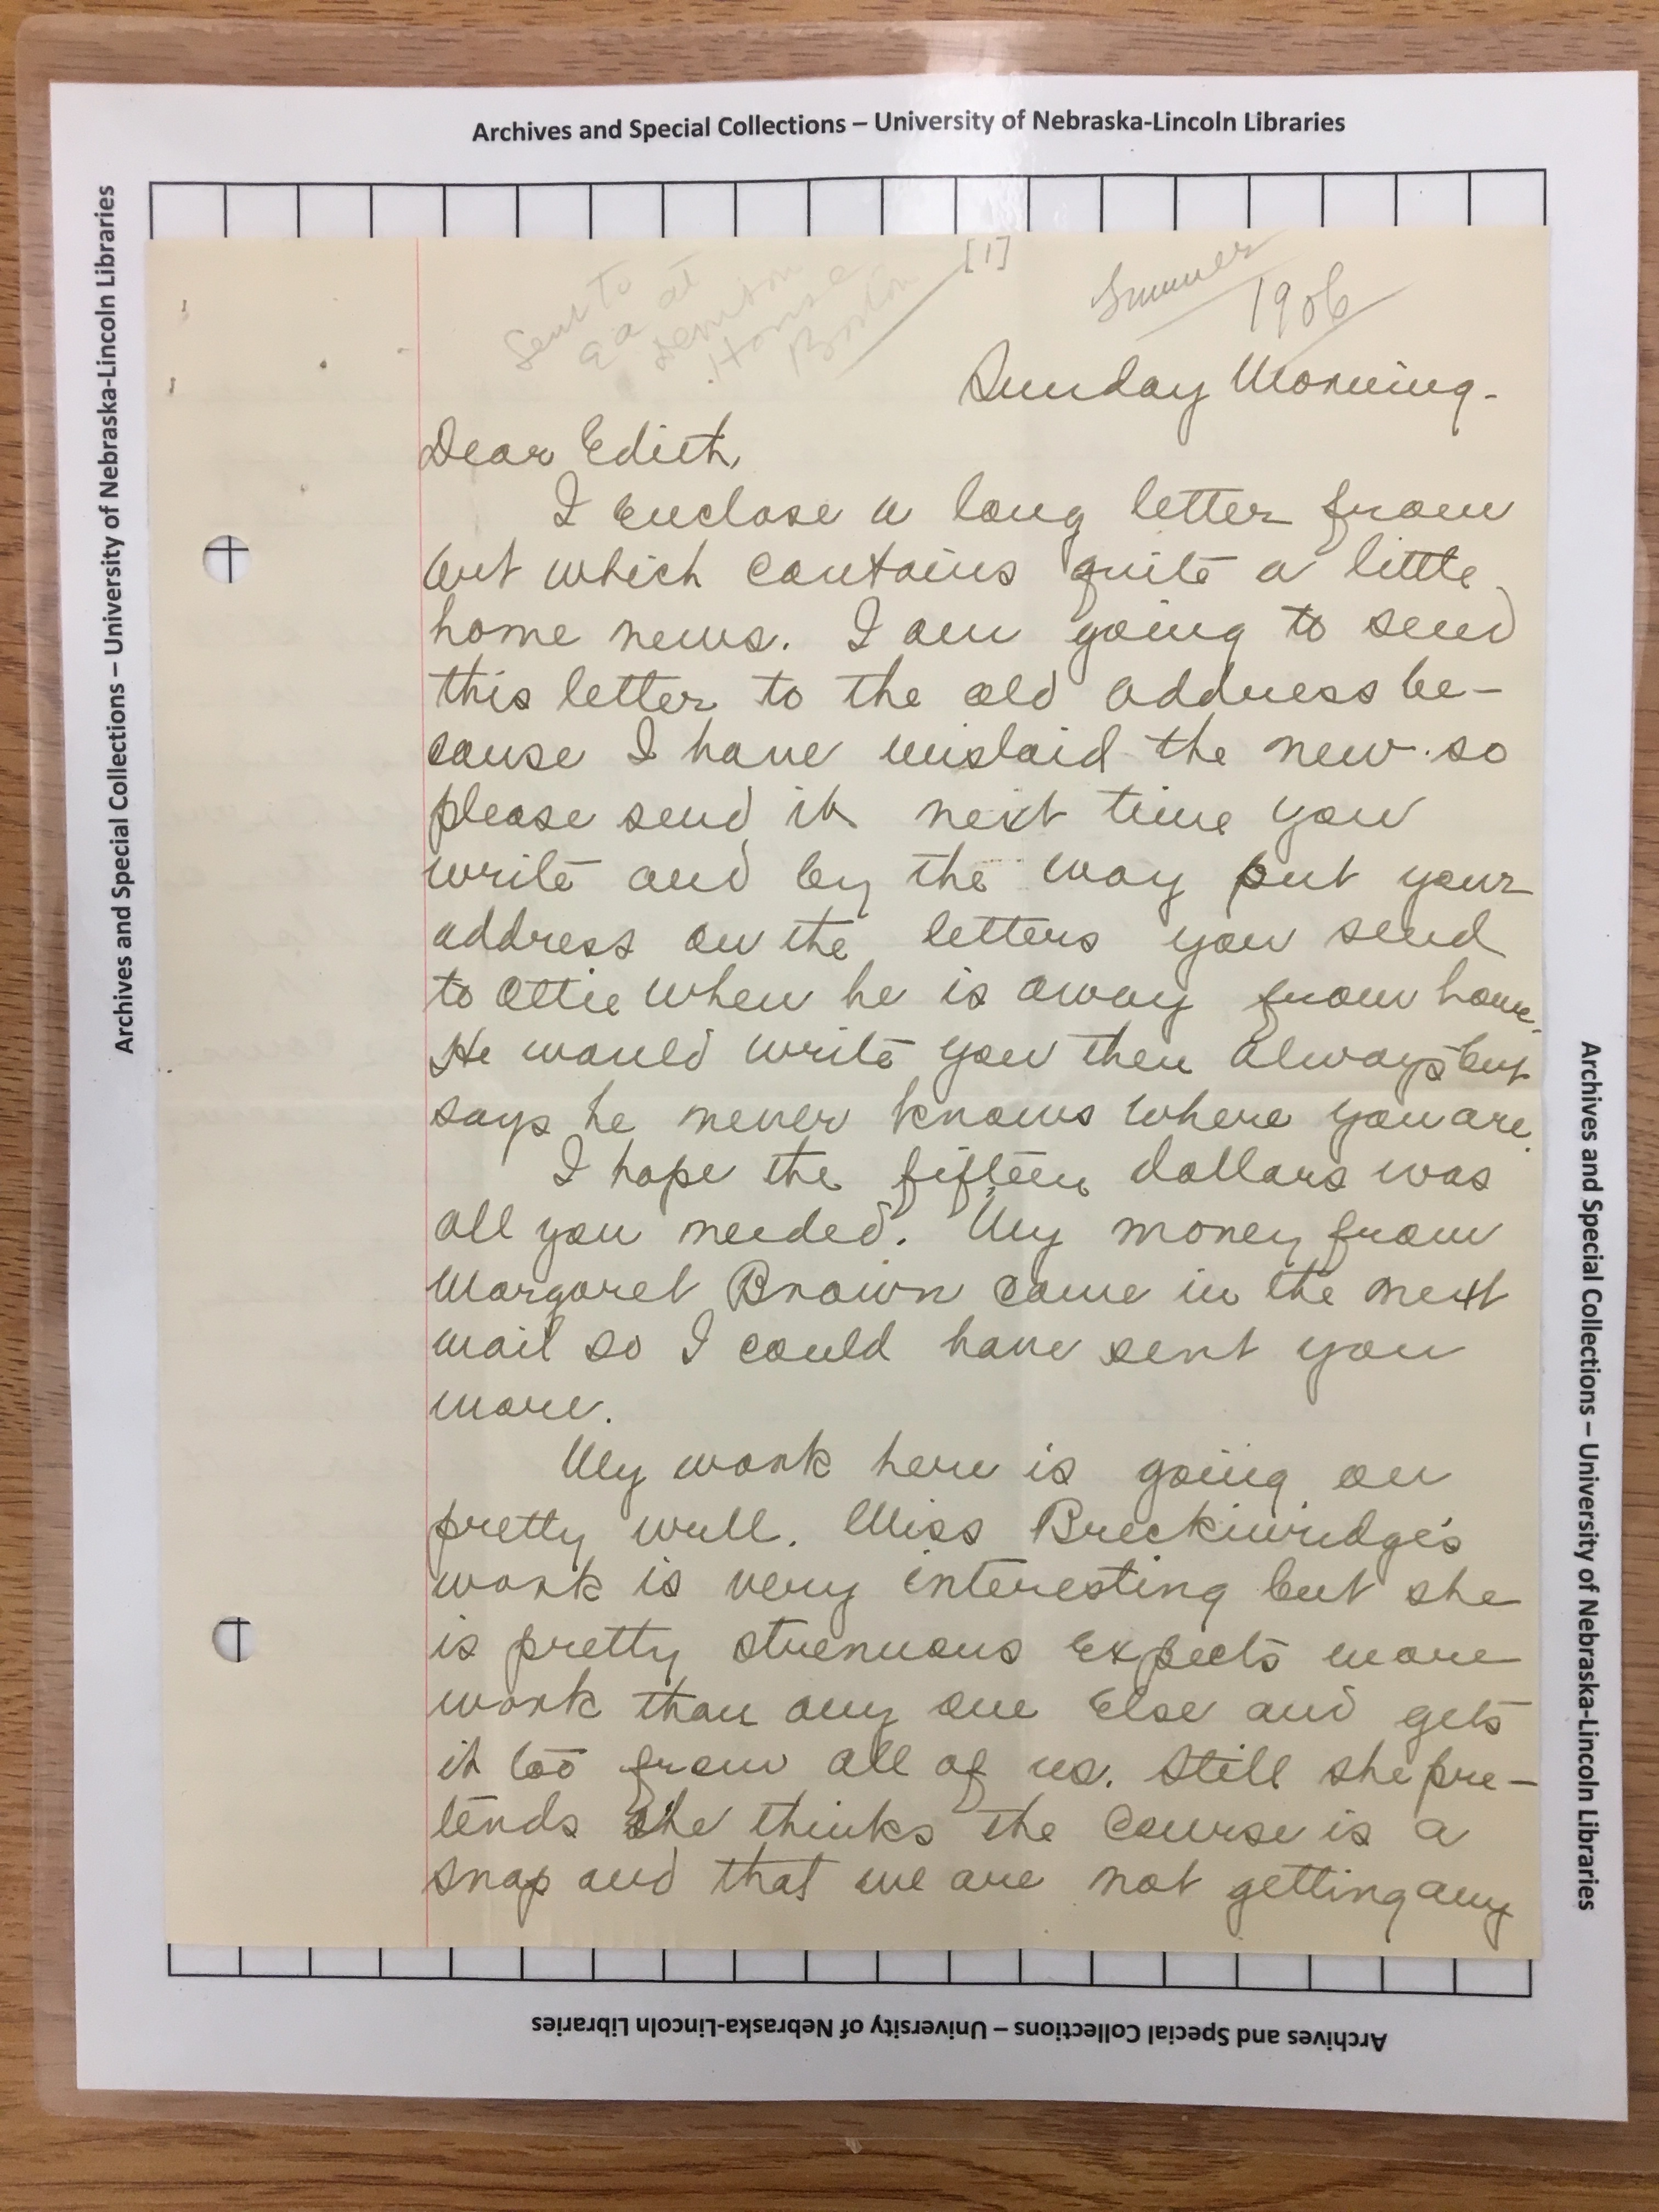 Archives and Special Collections – University of Nebraska-Lincoln Libraries
Archives and Special Collections – University of Nebraska-Lincoln Libraries
[1]
Sent to
Ea at
Denison
House
Boston
Summer
1906
Sunday Morning-
Dear Edith,
I enclose a long letter from
but which contains quite a little
home news. I am going to send
this letter to the old address be-
cause I have mislaid the new so
please send it next time you
write and by the way put your
address on the letters you send
to Ottie when he is away from home.
He would write you then always but
says he never knows where you are.
I hope the fifteen dollars was
all you needed. My money from
Margaret Brown came in the next
mail so I could have sent you
more.
My work here is going on
pretty well. Miss Breckinridge's
work is very interesting but she
is pretty strenuous expects more
work than any one else and gets
it too from all of us. Still she pre-
tends she thinks the course is a
snap and that we are not getting any
Archives and Special Collections – University of Nebraska-Lincoln Libraries
Archives and Special Collections – University of Nebraska-Lincoln Libraries